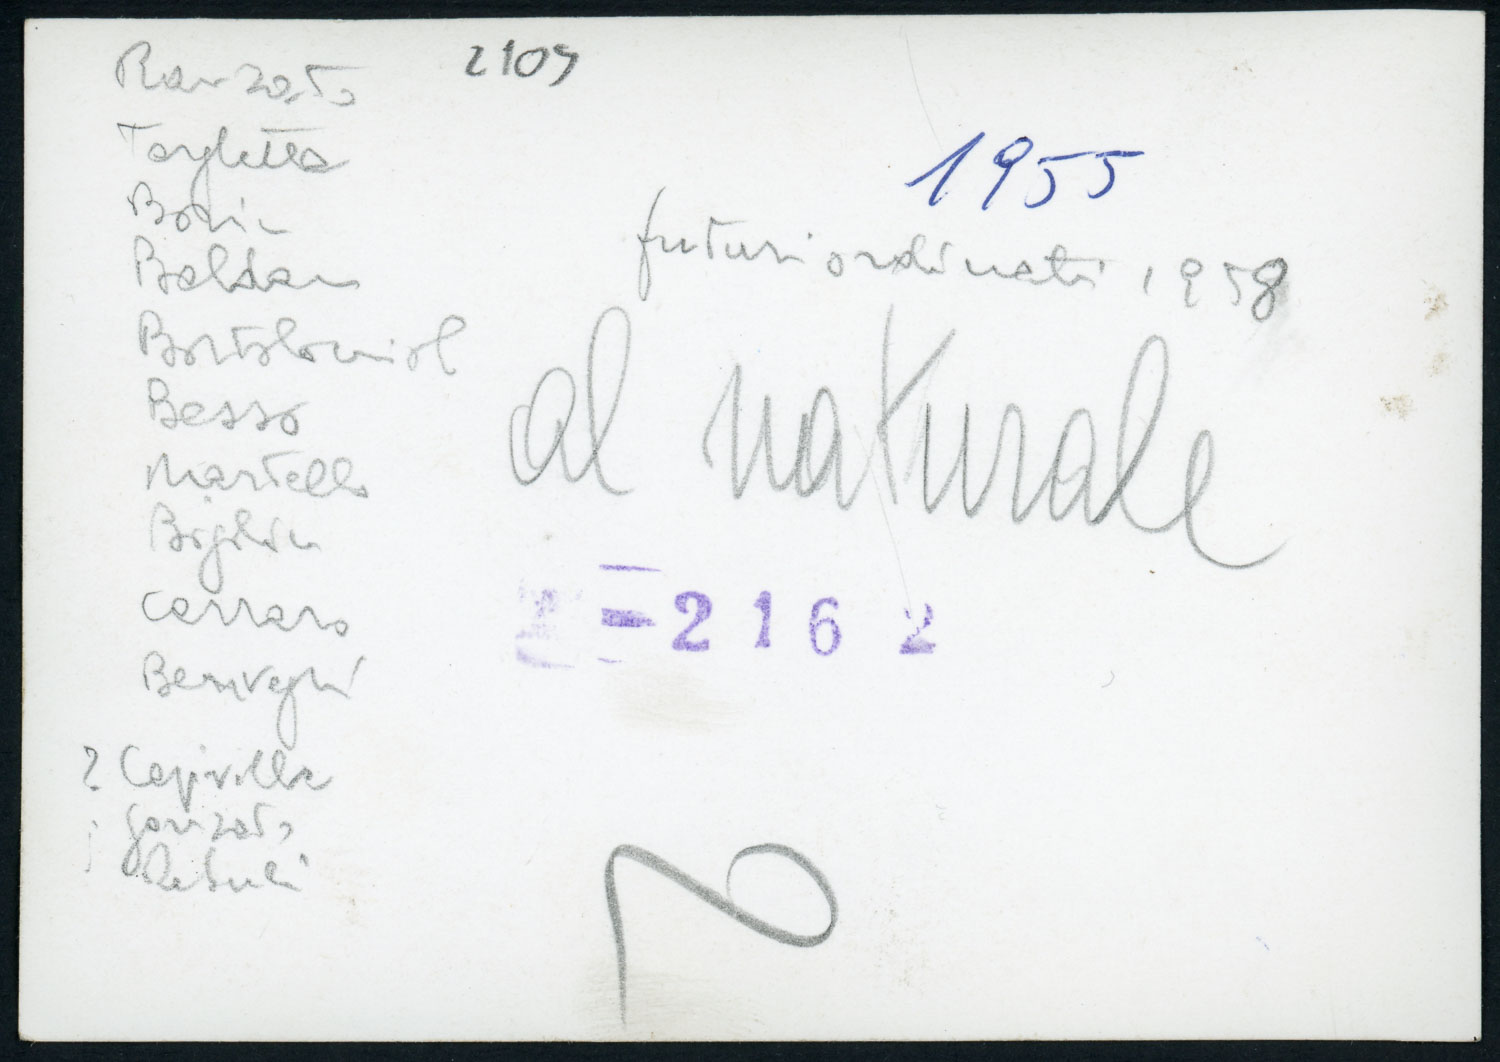 2109
Ranzato
Targhetta
Borin
Baldan
Bortolomiol
Besso
Martello
Bigolin
Carraro
Benvegnù
? Capivilla
Gonzato
1955
futuri ordinati 1958
al naturale
2 1 6 2